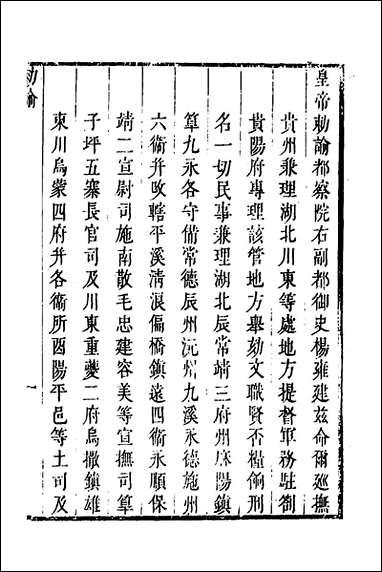 皇帝勅諭都察院右副都御史楊雍建茲命爾廵撫
貴州兼理湖北川東等處地方提督軍務駐劄
貴陽府專理該管地方舉劾文職賢否糧餉刑
名一切民事兼理湖北辰常靖三府州麻陽鎮
筸九永各守備常德辰州沅州九溪永德施州
六衛并改轄平溪清浪偏橋鎮遠四衛永順保
靖二宣尉司施南散毛忠建容美等宣撫司筸
子坪五寨長官司及川東重夔二府烏撒鎮雄
東川烏蒙四府并各衛所酉陽平邑等土司及
勅諭
一